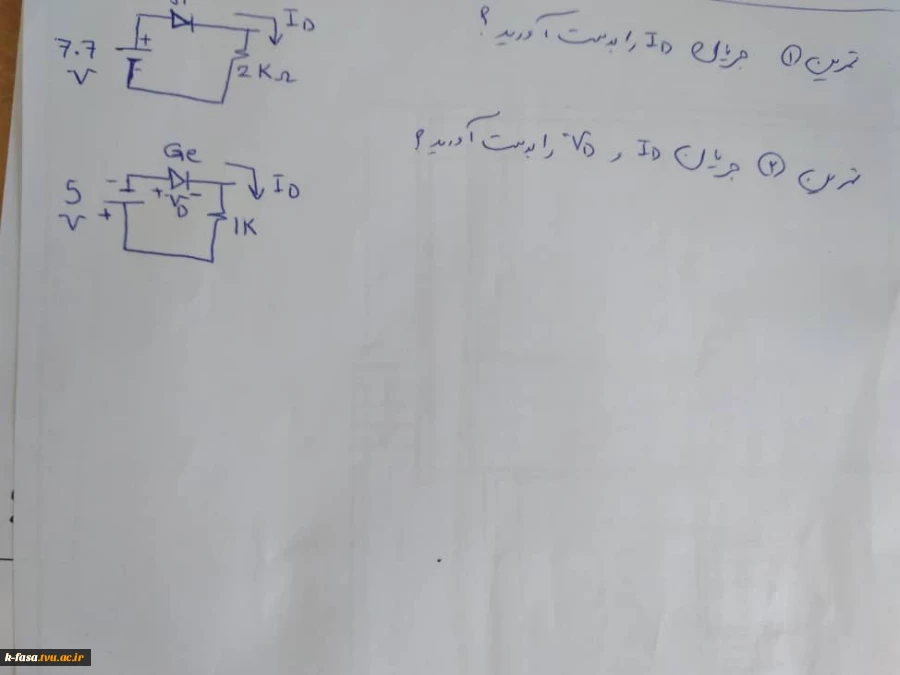 تمرین ① جریان I_D را بدست آورید؟
I_D
+
7.7
V
2 KΩ
تمرین ② جریان I_D و V_D را بدست آورید؟
Ge
I_D
- + V_D -
5
V
+
1K
k-fasa.tvu.ac.ir